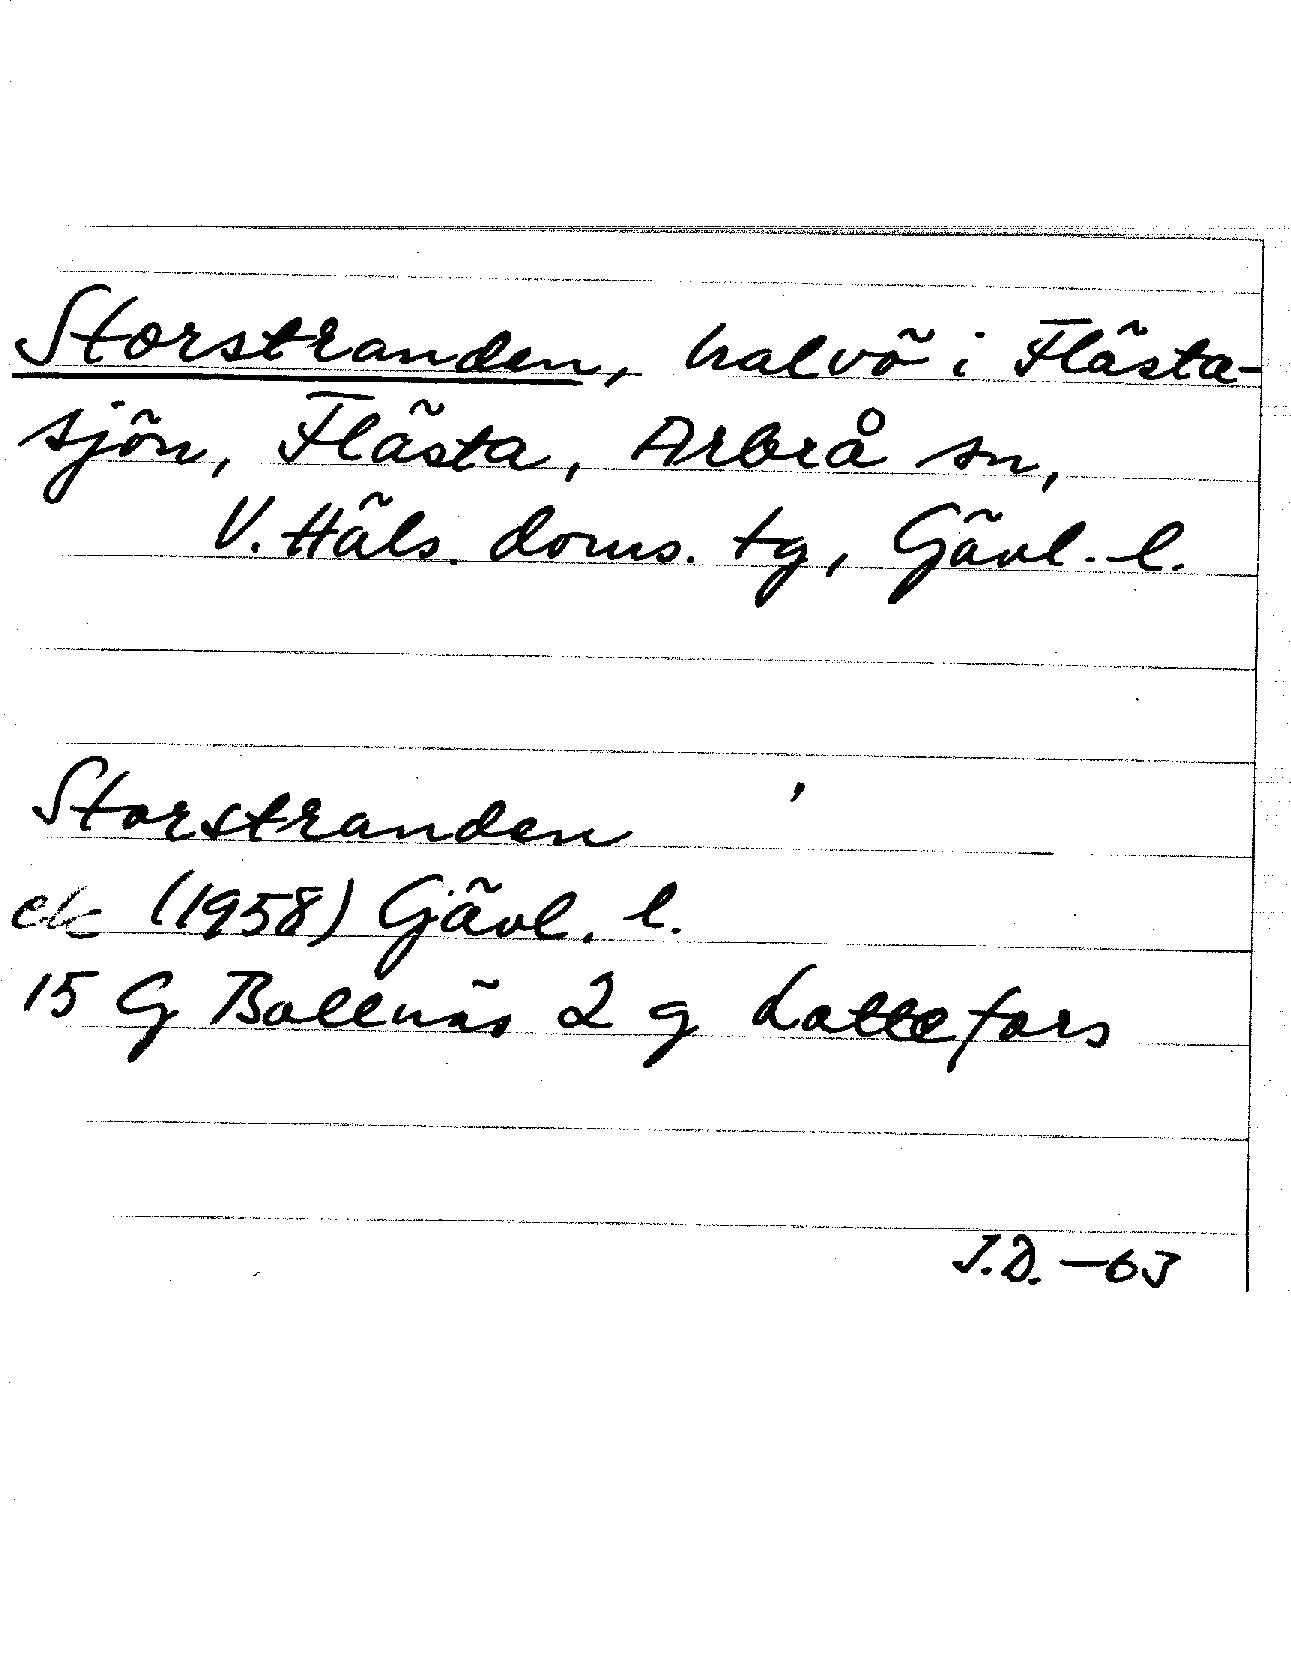 Storstranden, halvö i Flästa-
sjön, Flästa, Arbrå sn,
V. Häls. doms. tg, Gävl. l.
Storstranden
ek (1958) Gävl. l.
15 G Bollnäs 2 g Lottefors
J.D. -63